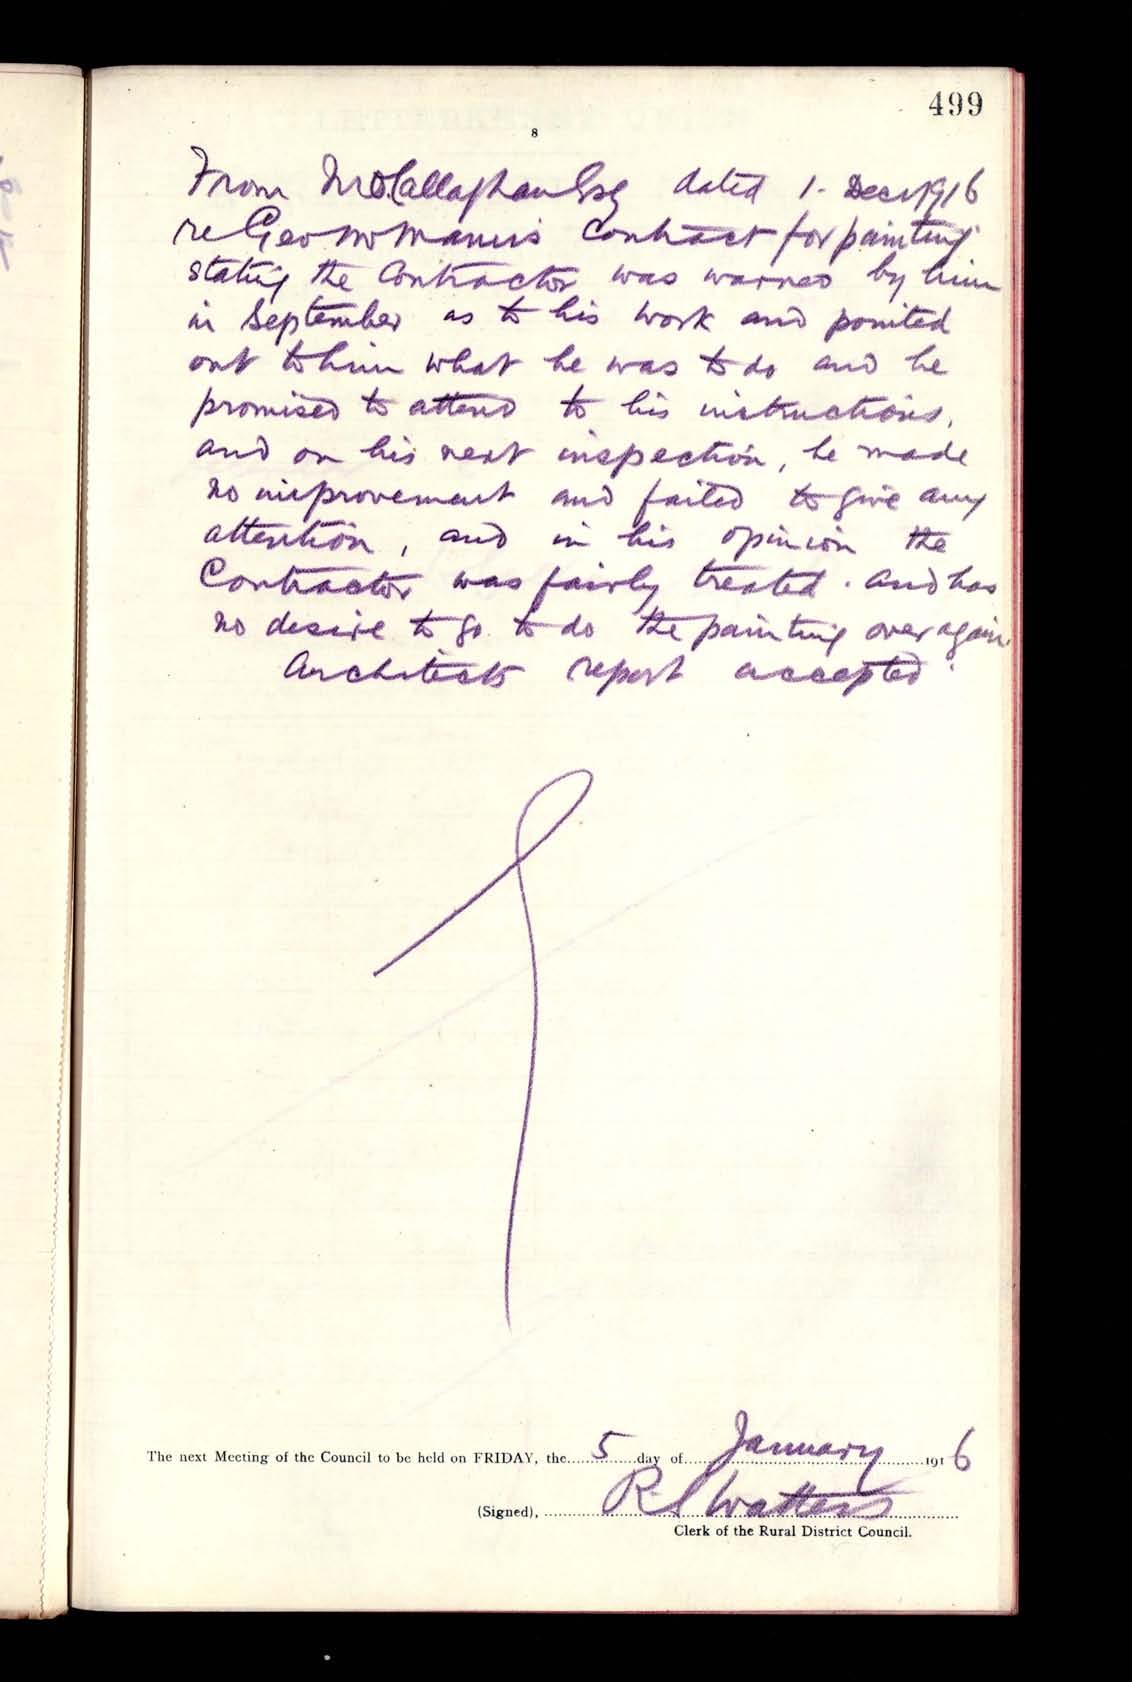 499
8
From J. O'Callaghan Esq dated 1. Decr 1916
re Geo McManus Contract for painting
stating the Contractor was warned by him
in September as to his work and pointed
out to him what he was to do and he
promised to attend to his instructions,
and on his next inspection, he made
no improvement and failed to give any
attention, and in his opinion the
Contractor was fairly treated. and has
no desire to go to do the painting over again
Architects report accepted.
The next Meeting of the Council to be held on FRIDAY, the 5 day of January 1916
(Signed), R S Watters
Clerk of the Rural District Council.